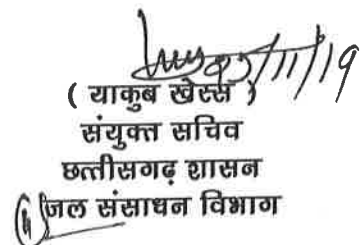 23/11/19
( याकुब खेस्स )
संयुक्त सचिव
छत्तीसगढ़ शासन
जल संसाधन विभाग